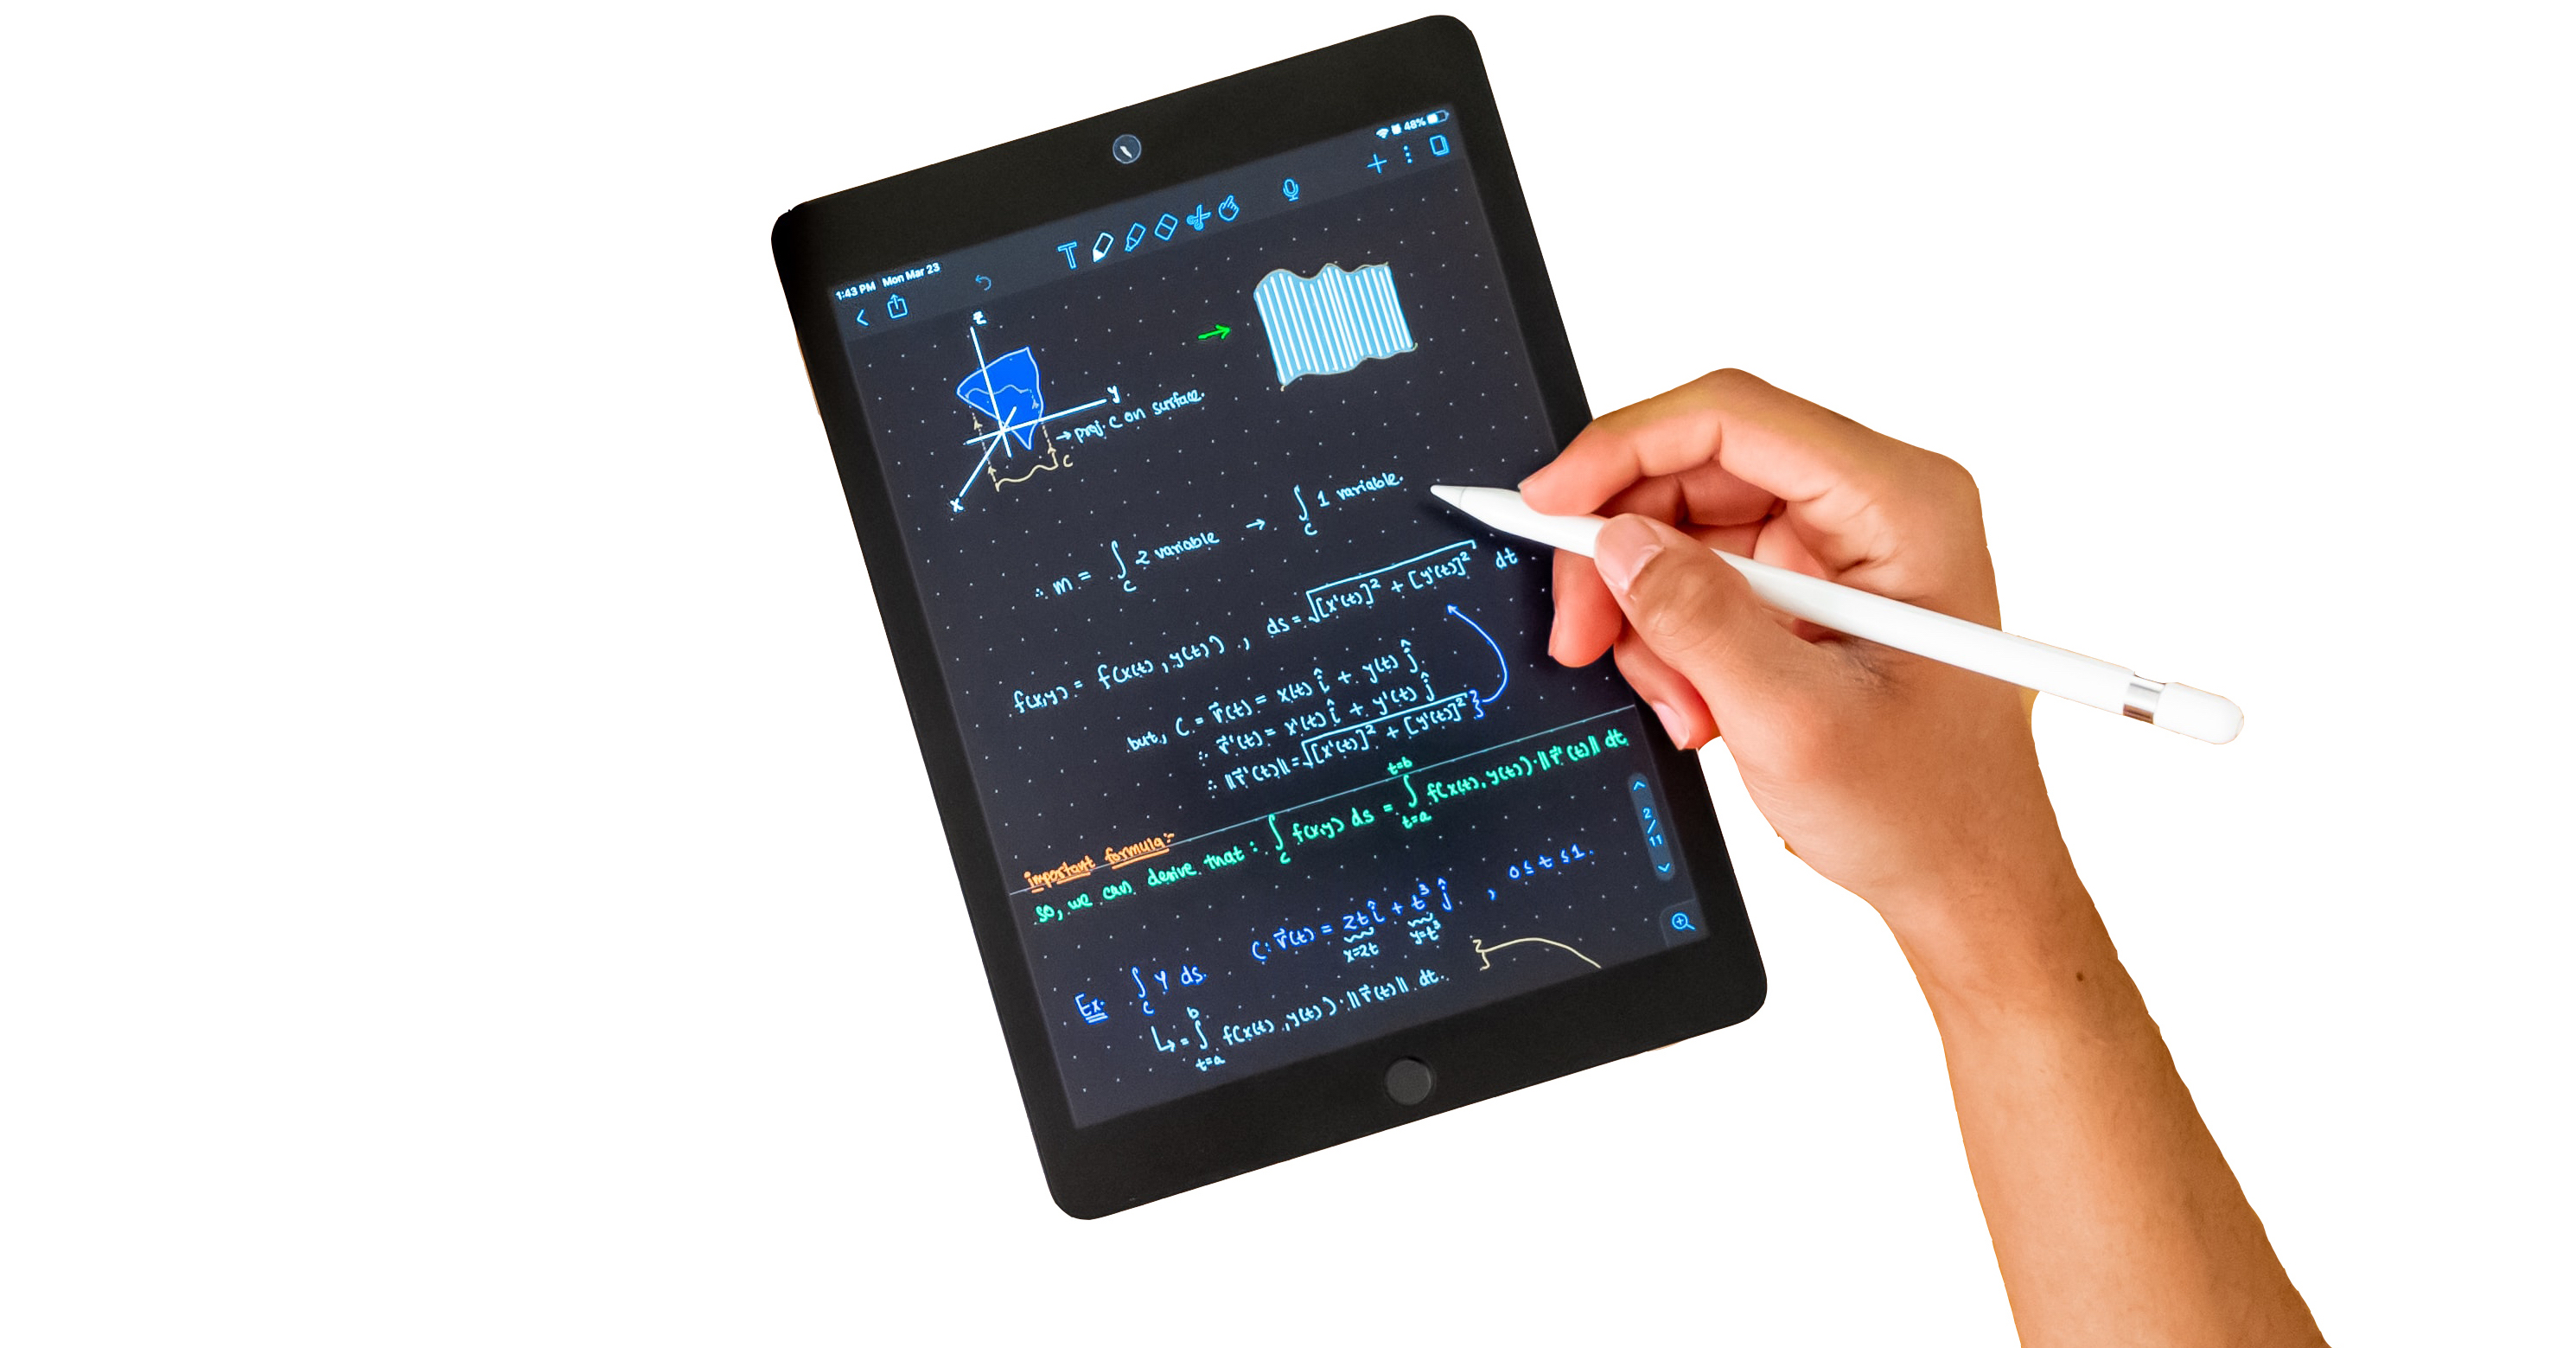 1:43 PM Mon Mar 23
48%
z
y
→ proj. C on surface.
C
x
∴ m = ∫_C 2 variable → ∫_C 1 variable.
f(x,y) = f(x(t), y(t)), ds = √([x'(t)]² + [y'(t)]²) dt
but, C = r⃗(t) = x(t) î + y(t) ĵ
∴ r⃗'(t) = x'(t) î + y'(t) ĵ
∴ ||r⃗'(t)|| = √([x'(t)]² + [y'(t)]²) }
important formula:-
so, we can derive that: ∫_C f(x,y) ds = ∫_{t=a}^{t=b} f(x(t), y(t)) · ||r⃗'(t)|| dt
2/11
Ex. ∫_C y ds. C: r⃗(t) = 2t î + t³ ĵ, 0 ≤ t ≤ 1.
x=2t y=t³
↳ = ∫_{t=a}^{b} f(x(t), y(t)) · ||r⃗(t)|| dt.